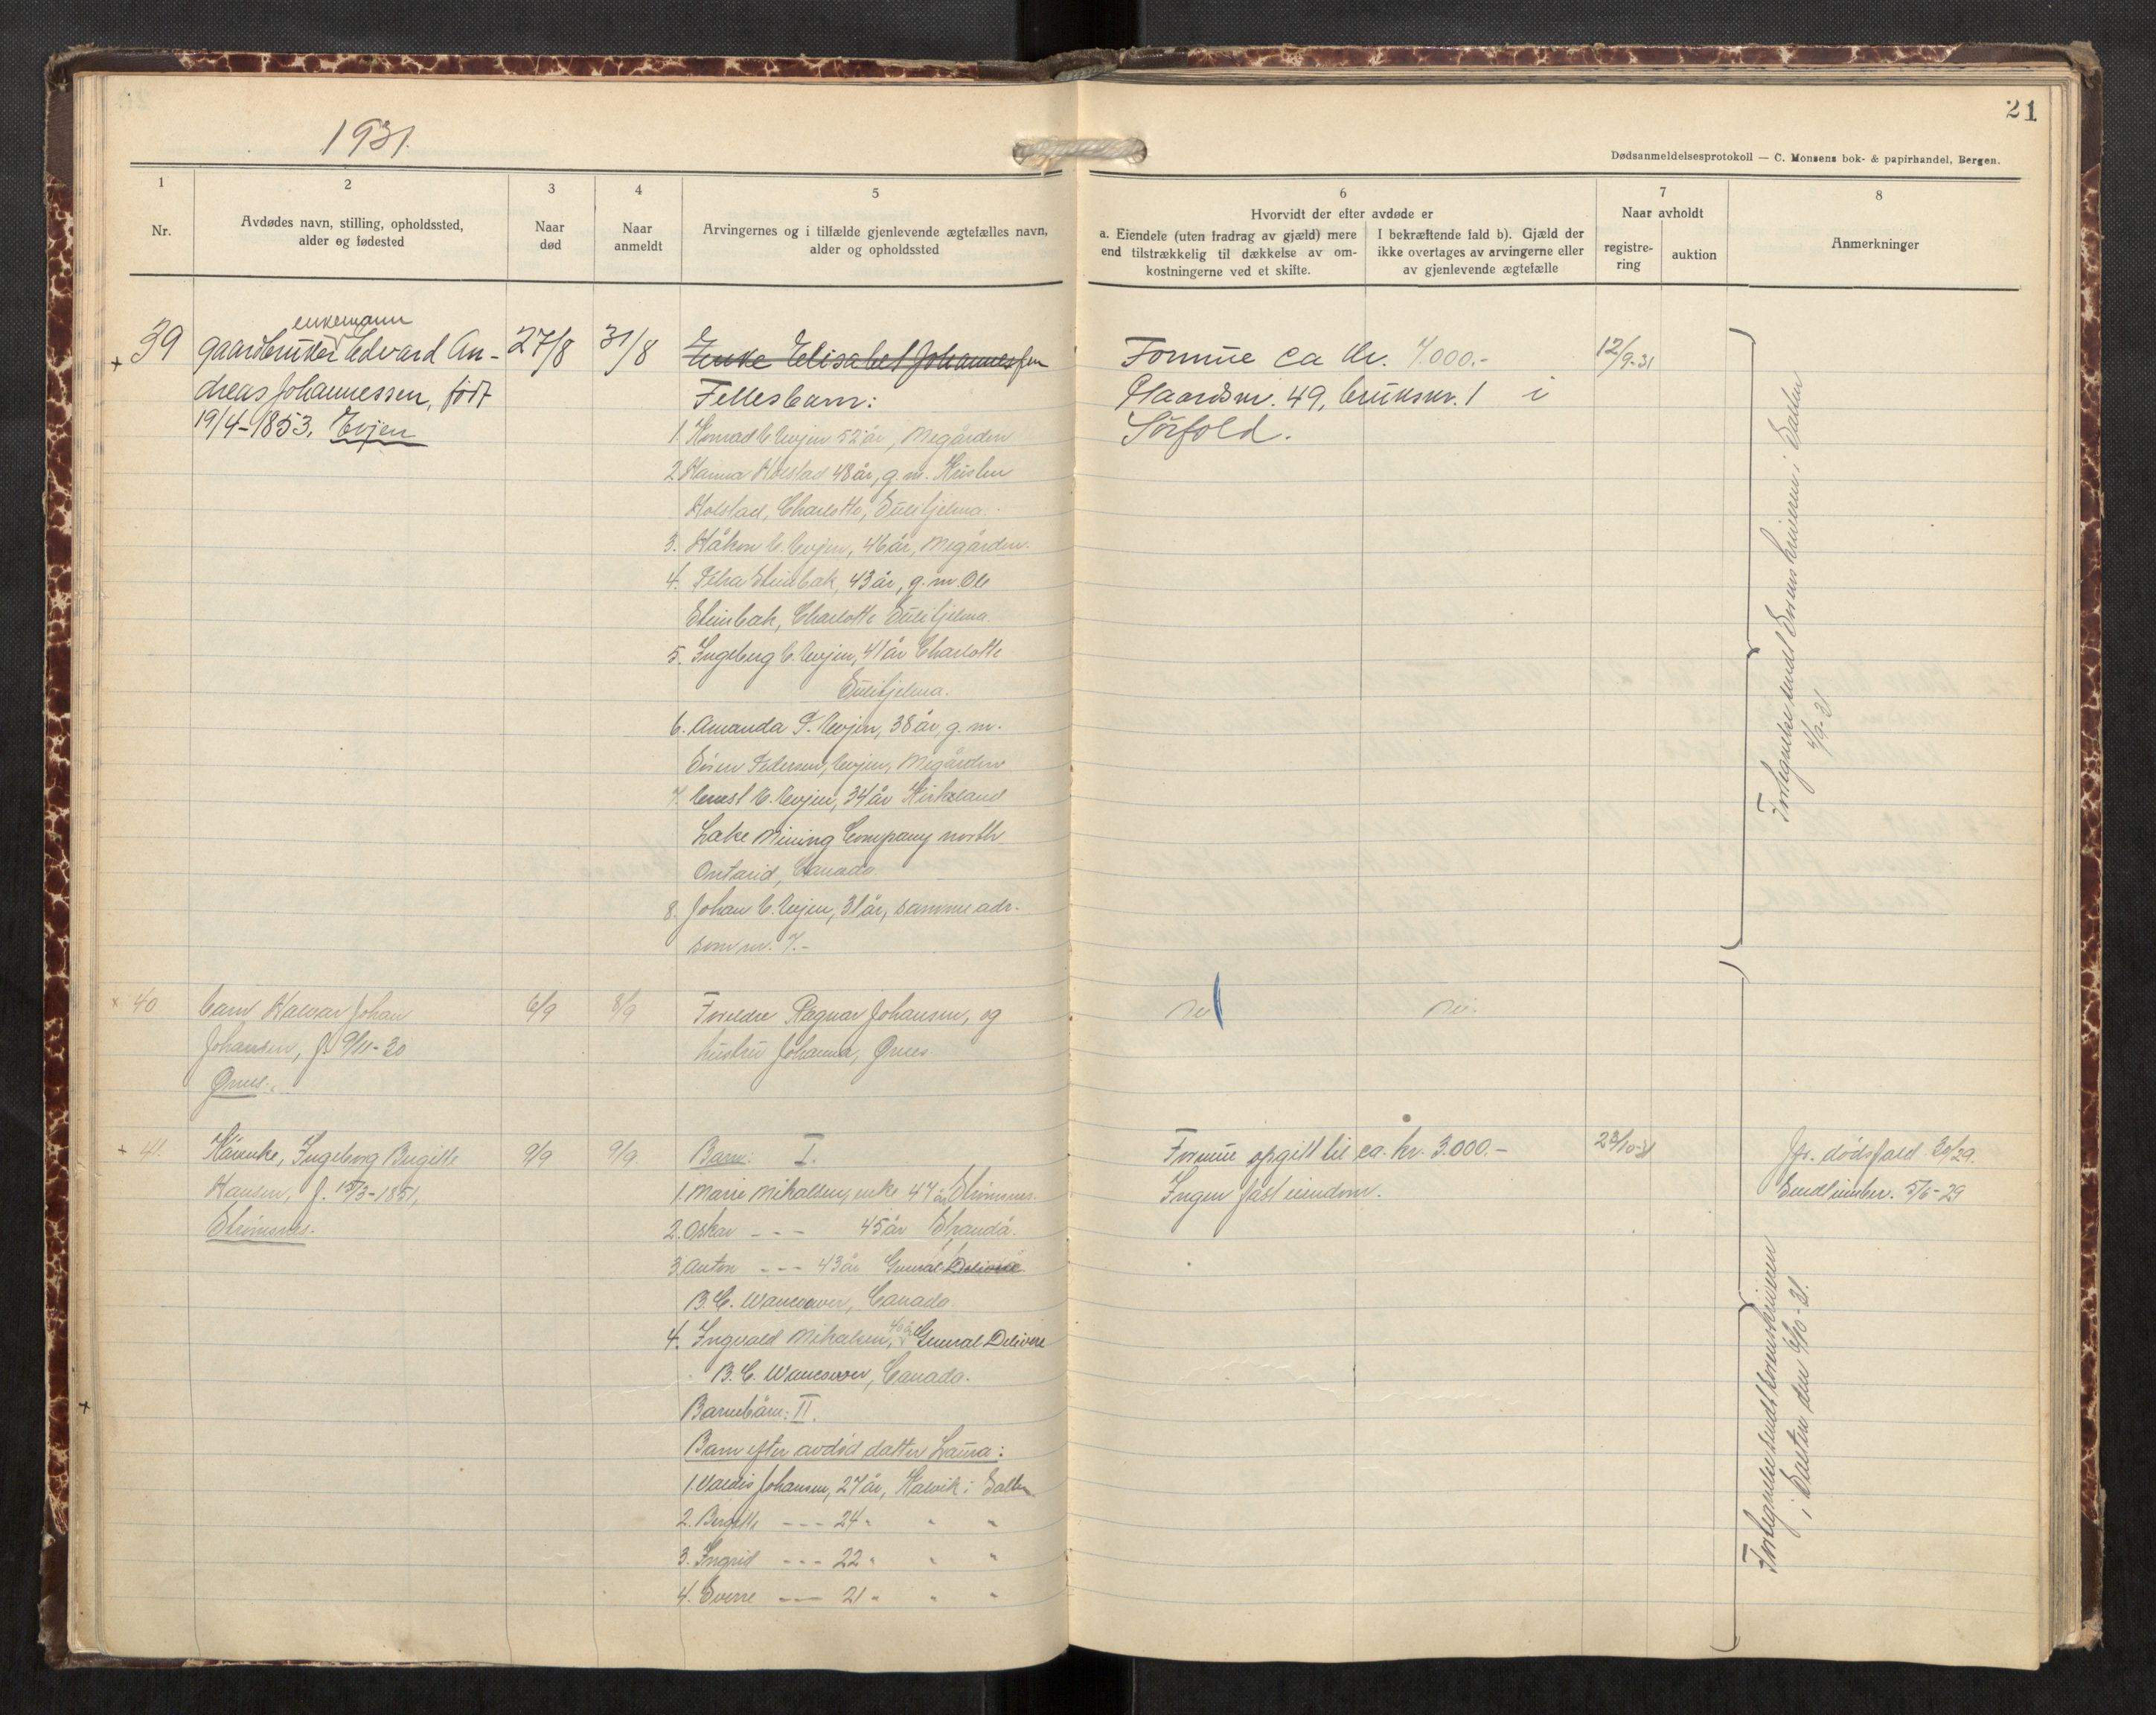 1931.
21
Dødsanmeldelsesprotokoll — C. Monsens bok- & papirhandel, Bergen.
1
2
3
4
5
6
7
8
Nr.
Avdødes navn, stilling, opholdssted,
alder og fødested
Naar
død
Naar
anmeldt
Arvingernes og i tilfælde gjenlevende ægtefælles navn,
alder og opholdssted
Hvorvidt der efter avdøde er
a. Eiendele (uten fradrag av gjæld) mere
end tilstrækkelig til dækkelse av om-
kostningerne ved et skifte.
I bekræftende fald b). Gjæld der
ikke overtages av arvingerne eller
av gjenlevende ægtefælle
Naar avholdt
registre-
ring
auktion
Anmerkninger
+ 39
enkemann
gaardbruker Edvard An-
dreas Johannessen, født
19/4-1853. Evjen
27/8
31/8
Enke Elisabet Johannessen
Fellesbarn:
1. Konrad E. Evjen 52 år, Megården
2. Hanna Kolstad 48 år, g.m.
Kolstad, Charlotte, Sulitjelma.
3. Håkon E. Evjen, 46 år, Megården.
4. Steinbak, 43 år, g.m. Ole
Steinbak, Charlotte Sulitjelma.
5. Ingeborg E. Evjen, 41 år Charlotte
Sulitjelma.
6. Amanda P. Evjen, 38 år, g.m.
Sören Pedersen, Evjen, Megården
7. Ernst E. Evjen, 34 år Kirkeland
Lake Mining Company north
Ontario, Canada.
8. Johan E. Evjen, 31 år, samme adr.
som nr. 7.-
Formue ca kr. 7.000.-
Gaardsnr. 49, bruksnr. 1 i
Sörfold.
12/9-31
Fortegnelse sendt Sorenskriveren i Salten
4/9-31
x 40
barn Halvar Johan
Johansen, f. 9/11-30
Ørnes.
6/9
8/9
Foreldre Ragnar Johansen, og
hustru Johanna, Ørnes
nei
nei.
+ 41.
Kårenke, Ingeborg Birgitte
Hansen, f. 15/3-1851,
Strömsnes.
9/9
9/9
Barn: I.
1. Marie Mikalsen, enke 47 år Strömsnes.
2. Oskar - - - 45 år Strandå.
3. Anton - - - 43 år General Delivere
B.C. Wancouver, Canada.
4. Ingvald Mikalsen, 40 år General Delivere
B.C. Wancouver, Canada.
Barnebarn: II.
Barn efter avdöd datter Laura:
1. Valdis Johansen, 27 år, Kalvik i Salten
2. Bergitte - - - 24 " " "
3. Ingrid - - - 22 " " "
4. Sverre - - - 21 " " "
Formue opgitt til ca. kr. 3.000.-
Ingen fast eiendom.
23/10-31
Jfr. dödsfald 20/29.
Sendt innber. 5/6-29
Fortegnelse sendt sorenskriveren
i Salten den 6/10-31.
+